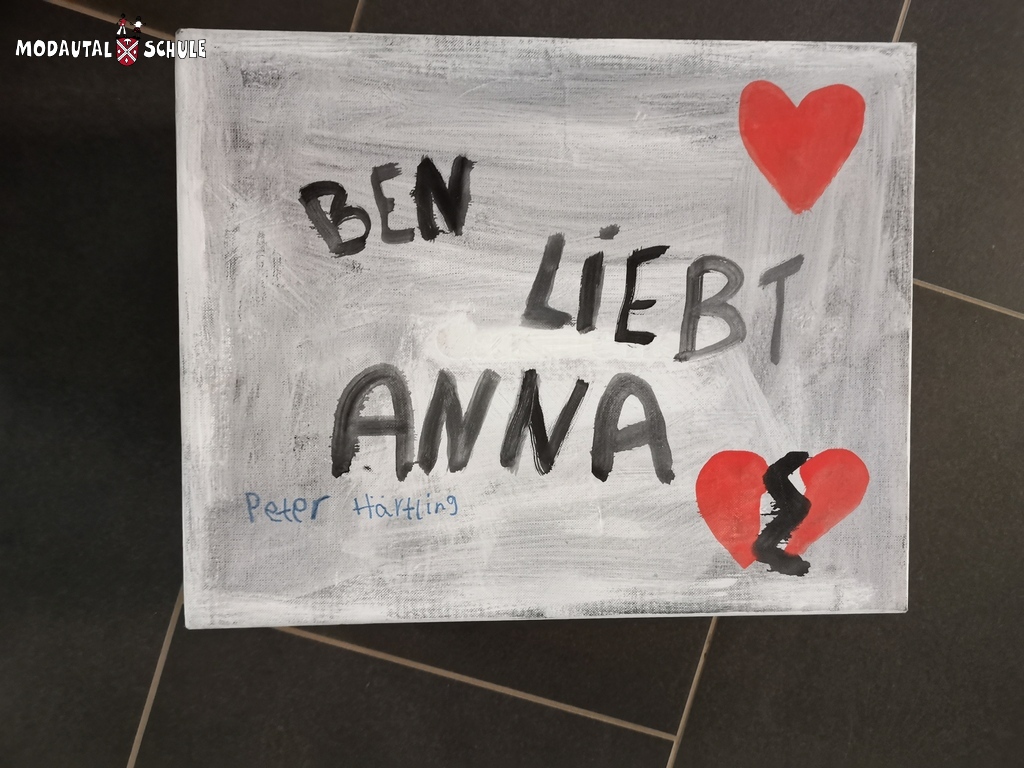 MODAUTAL SCHULE
BEN
LiEBT
ANNA
Peter Härtling